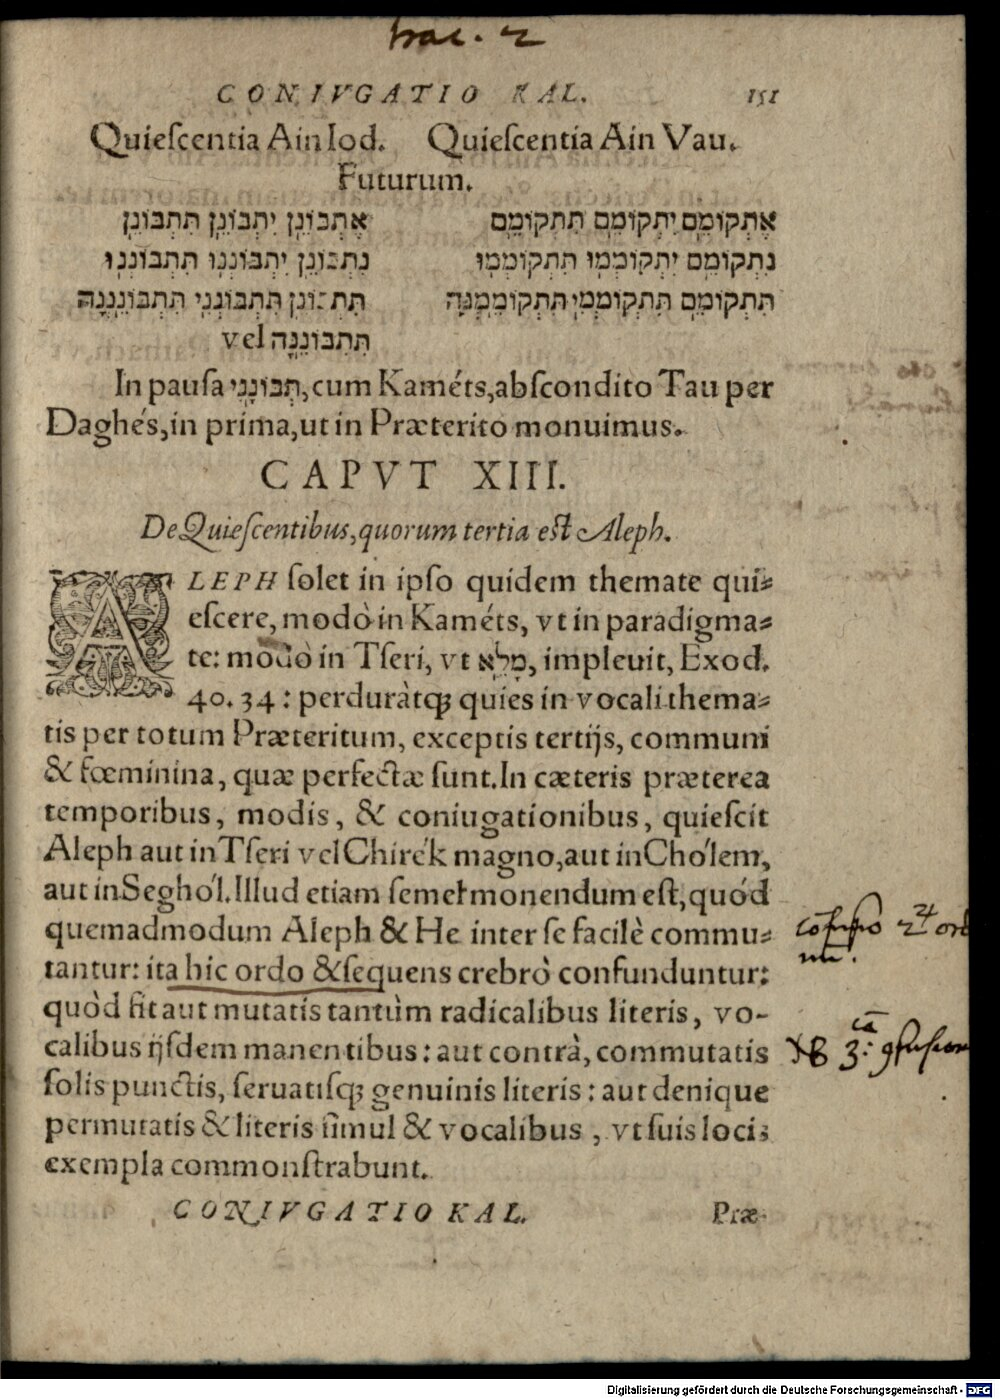 trac. 2
CONIVGATIO KAL. 151
Quieſcentia Ain Iod. Quieſcentia Ain Vau.
Futurum.
אֶתְבּוֹנֵן יִתְבּוֹנֵן תִּתְבּוֹנֵן אֶתְקוֹמֵם יִתְקוֹמֵם תִּתְקוֹמֵם
נִתְבּוֹנֵן יִתְבּוֹנְנוּ תִּתְבּוֹנְנוּ נִתְקוֹמֵם יִתְקוֹמְמוּ תִּתְקוֹמְמוּ
תִּתְבּוֹנֵן תִּתְבּוֹנְנִי תִּתְבּוֹנֵנְנָה תִּתְקוֹמֵם תִּתְקוֹמְמִי תִּתְקוֹמֵמְנָה
vel תִּתְבּוֹנֵנָּה
In pauſa תְּבּוֹנָנִי, cum Kaméts, abſcondito Tau per
Daghés, in prima, ut in Præterito monuimus.
CAPVT XIII.
De Quieſcentibus, quorum tertia est Aleph.
ALEPH ſolet in ipſo quidem themate qui⸗
eſcere, modò in Kaméts, vt in paradigma⸗
te: modò in Tſeri, vt מָלֵא, impleuit, Exod.
40. 34: perduràtq; quies in vocali thema⸗
tis per totum Præteritum, exceptis tertijs, communi
& fœminina, quæ perfectæ ſunt. In cæteris præterea
temporibus, modis, & coniugationibus, quieſcit
Aleph aut in Tſeri vel Chirék magno, aut in Chólem,
aut in Seghól. Illud etiam ſemel monendum eſt, quód
quemadmodum Aleph & He inter ſe facilè commu⸗
tantur: ita hic ordo & ſequens crebrò confunduntur:
quòd fit aut mutatis tantùm radicalibus literis, vo-
calibus ijſdem manentibus: aut contrà, commutatis
ſolis punctis, ſeruatiſq; genuinis literis: aut denique
permutatis & literis ſimul & vocalibus, vt ſuis locis
exempla commonſtrabunt.
CONIVGATIO KAL. Præ-
Digitalisierung gefördert durch die Deutsche Forschungsgemeinschaft - DFG